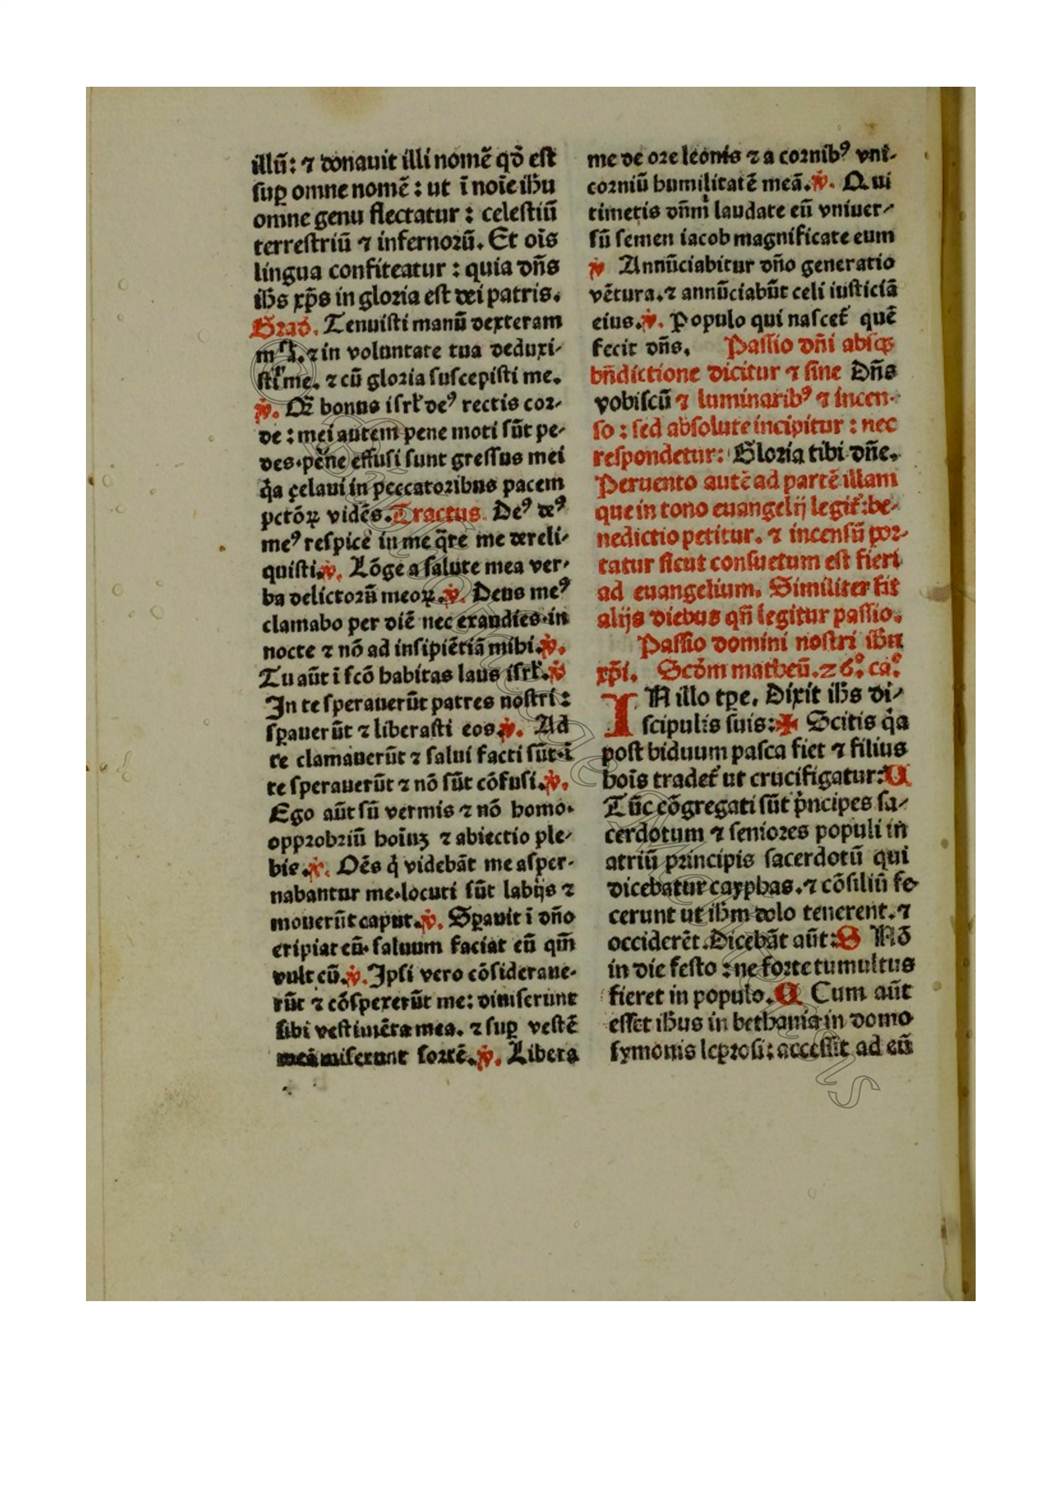 illū: ⁊ donauit illi nomē qd̄ est
suꝑ omne nomē: ut ī noīe ihū
omne genu flectatur: celestiū
terrestriū ⁊ infernoꝛū. Et oīs
lingua confiteatur: quia dn̄s
ihs xp̄s in gloꝛia est dei patris.
Grad. Tenuisti manū dexteram
⁊ in voluntate tua deduxi⸗
sti me. ⁊ cū gloꝛia suscepisti me.
℣. Q̄ꝫ bonus isrl̄ deꝰ rectis coꝛ⸗
de: mei autem pene moti sūt pe⸗
des. pēne effusi sunt gressus mei
q̄a çelaui in peccatoꝛibus pacem
pctōꝝ vidēs. Tractus. Deꝰ deꝰ
meꝰ respice in me q̄re me dereli⸗
quisti. ℣. Lōge a salute mea ver⸗
ba delictoꝛū meoꝝ. ℣. Deus meꝰ
clamabo per diē nec exaudies. in
nocte ⁊ nō ad insipiētiā mihi. ℣.
Tu aūt ī scō habitas laus isrl̄. ℣
In te sperauerūt patres nostri:
sꝑauerūt ⁊ liberasti eos. ℣. Ad
te clamauerūt ⁊ salui facti sūt. ī
te sperauerūt ⁊ nō sūt cōfusi. ℣.
Ego aūt sū vermis ⁊ nō homo.
oppꝛobꝛiū hoīuꝫ ⁊ abiectio ple⸗
bis. ℣. Oēs q̇ videbāt me asper⸗
nabantur me. locuti sūt labijs ⁊
mouerūt caput. ℣. Sꝑauit ī dn̄o
eripiat eū. saluum faciat eū qm̄
vult eū. ℣. Ipsi vero cōsideraue⸗
rūt ⁊ cōspexerūt me: diuiserunt
sibi vestimēta mea. ⁊ suꝑ vestē
meā miserunt soꝛtē. ℣. Libera
me de oꝛe leonis ⁊ a coꝛnibꝰ vni⸗
coꝛniū humilitatē meā. ℣. Qui
timetis dn̄m laudate eū vniuer⸗
sū semen iacob magnificate eum
℣ Annūciabitur dn̄o generatio
vētura. ⁊ annūciabūt celi iusticiā
eius. ℣. Populo qui nascet̄ quē
fecit dn̄s. Passio dn̄i absqꝫ
bn̄dictione dicitur ⁊ sine Dn̄s
vobiscū ⁊ luminaribꝰ ⁊ incen⸗
so: sed absolute incipitur: nec
respondetur: Gloꝛia tibi dn̄e.
Peruento autē ad partē illam
que in tono euangelij legit̄: be⸗
nedictio petitur. ⁊ incensū poꝛ⸗
tatur sicut consuetum est fieri
ad euangelium. Similiter fit
alijs diebus qn̄ legitur passio.
Passio domini nostri ihū
xp̄i. Scd̄m matheū. 26°. ca°.
IN illo tꝑe. Dixit ihs di⸗
scipulis suis: ✠ Scitis q̇a
post biduum pasca fiet ⁊ filius
hoīs tradet̄ ut crucifigatur: C
Tūc cōgregati sūt pͥncipes sa⸗
cerdotum ⁊ senioꝛes populi in
atriū pꝛincipis sacerdotū qui
dicebatur cayphas. ⁊ cōsiliū fe⸗
cerunt ut ihm dolo tenerent. ⁊
occiderēt. Dicebāt aūt: S Nō
in die festo: ne foꝛte tumultus
fieret in populo. C Cum aūt
esset ihus in bethania in domo
symonis lepꝛosi: accessit ad eū